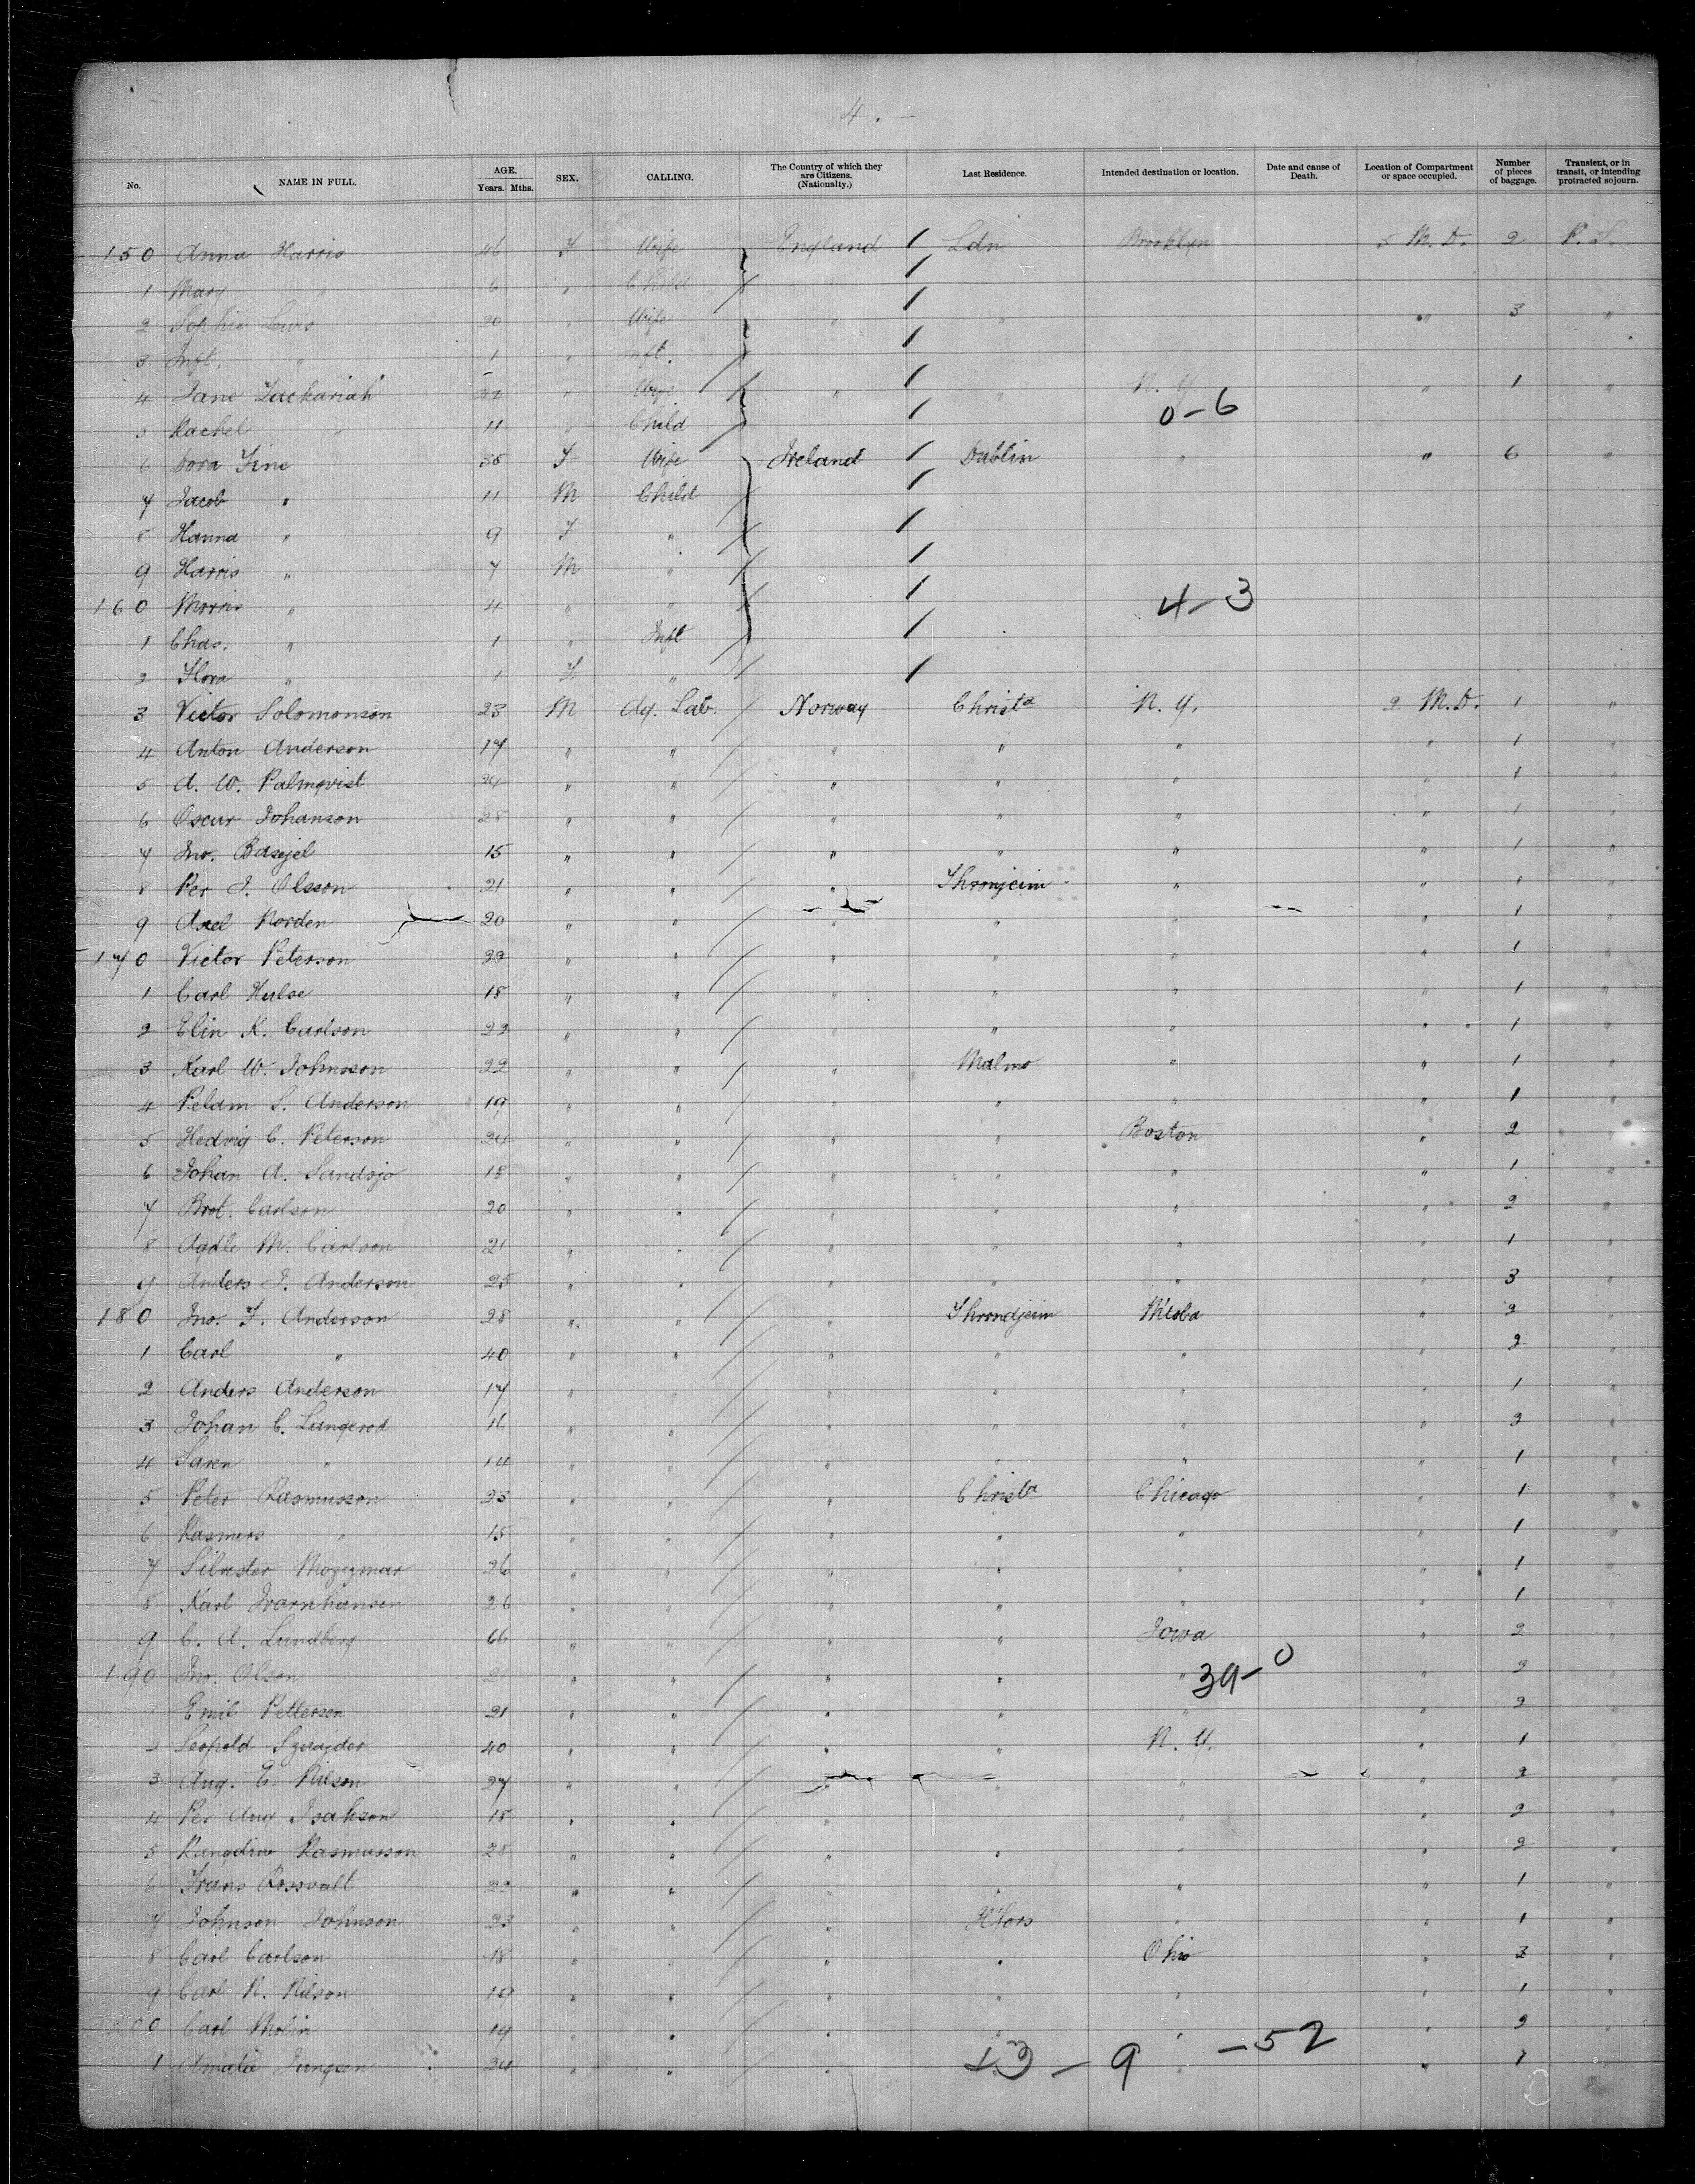 4. —
No. NAME IN FULL. AGE. Years. Mths. SEX. CALLING. The Country of which they are Citizens. (Nationality.) Last Residence. Intended destination or location. Date and cause of Death. Location of Compartment or space occupied. Number of pieces of baggage. Transient, or in transit, or intending protracted sojourn.
150 Anna Harris 46 F Wife England / Ldn Brooklyn 5 M.D. 2 P.S.
1 Mary " 6 " Child /
2 Sophie Lewis 20 " Wife " / " " 3 "
3 Inft. " 1 " Inft. /
4 Jane Zackariah " Wife " / " N.Y. " 1 "
0-6
5 Rachel " 11 " Child /
6 Dora Fine 35 F Wife Ireland / Dublin " " 6 "
7 Jacob " 11 M Child /
8 Hanna " 9 F " /
9 Harris " 7 M " /
160 Morris " 4 " " / 4-3
1 Chas. " 1 " Inft /
2 Flora " 1 F " /
3 Victor Solomonson 23 M Ag. Lab. / Norway Christa N.Y. 2 M.D. 1 "
4 Anton Anderson 17 " " / " " " " 1 "
5 A. W. Palmqvist 24 " " / " " " " 1 "
6 Oscar Johanson 28 " " / " " " " 1 "
7 Jno. Basejel 15 " " / " " " " 1 "
8 Per J. Olsson 21 " " / " Thronjeim " " 1 "
9 Axel Norden 20 " " / " " " " 1 "
170 Victor Peterson 22 " " / " " " " 1 "
1 Carl Hulse 18 " " / " " " " 1 "
2 Elin K. Carlson 22 " " / " " " " 1 "
3 Karl W. Johnsson 22 " " / " Malmo " " 1 "
4 Pelam S. Anderson 19 " " / " " " " 1 "
5 Hedvig C. Peterson 24 " " / " " Boston " 2 "
6 Johan A. Sandsjo 18 " " / " " " " 1 "
7 Brot. Carlson 20 " " / " " " " 2 "
8 Aadle M. Carlson 21 " " / " " " " 1 "
9 Anders J. Anderson 25 " " / " " " " 3 "
180 Jno. F. Anderson 28 " " / " Throndjeim M'toba " 2 "
1 Carl " 40 " " / " " " " 2 "
2 Anders Anderson 17 " " / " " " " 1 "
3 Johan C. Langerod 16 " " / " " " " 2 "
4 Saren " 14 " " / " " " " 1 "
5 Peter Rasmusson 23 " " / " Christa Chicago " 1 "
6 Rasmers " 15 " " / " " " " 1 "
7 Silvester Mogezmar 26 " " / " " " " 1 "
8 Karl Ivarnhansen 26 " " / " " " " 1 "
9 C. A. Lundberg 66 " " / " " Iowa " 2 "
190 Jno. Olson " " / " " " " 2 "
39-0
Emil Petterson 21 " " / " " " " 2 "
2 Leopold Sznajder 40 " " / " " N.Y. " 1 "
3 Aug. E. Nilson 27 " " / " " " " 2 "
4 Per Aug Isakson 18 " " / " " " 2 "
5 Rangdiw Rasmusson 28 " " / " " " " 2 "
6 Frans Rossvalt 22 " " / " " " " 1 "
7 Johnson Johnson 23 " " / " H'fors " " 1 "
8 Carl Carlson 18 " " / " " Ohio " 3 "
9 Carl N. Nilson 19 " " / " " " " 1 "
200 Carl Molin 19 " " / " " " " 2
1 Amalia Jungsen 24 " " / " " " " 1
- 9 - 52